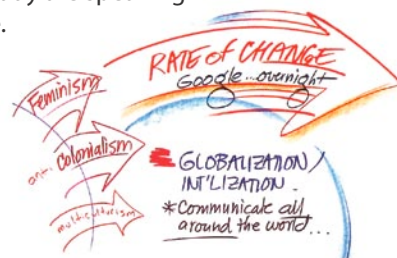 RATE of CHANGE
Google...overnight
Feminism
anti-
Colonialism
multiculturism
GLOBALIZATION/
INT'LIZATION.
*Communicate all
around the world...